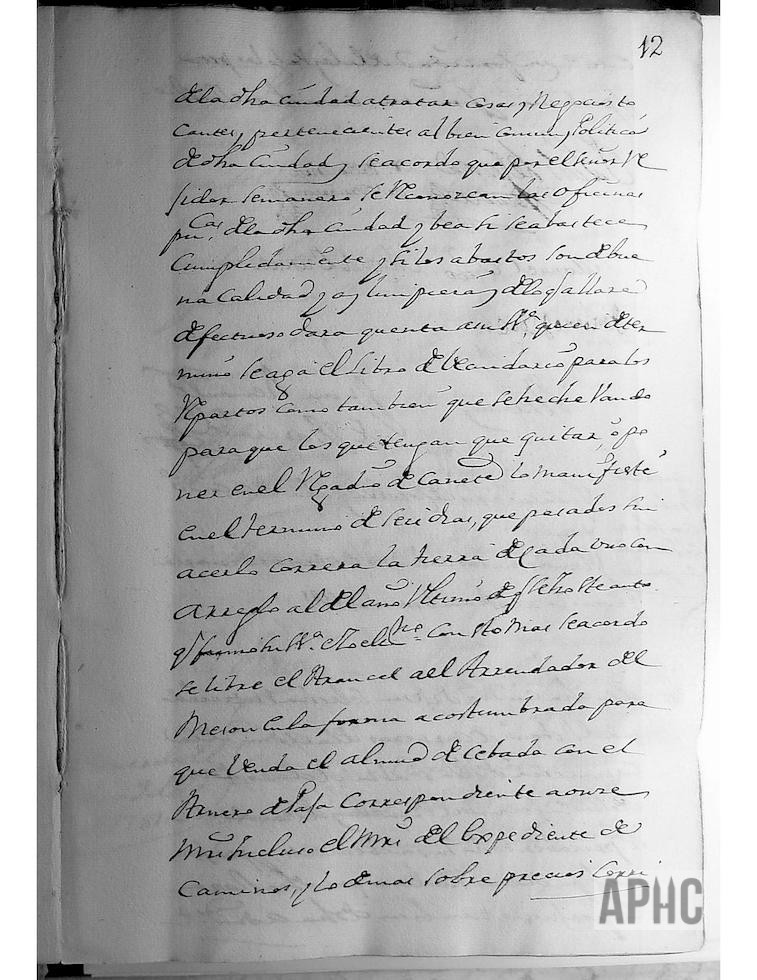 12
de la dha Ciudad a tratar Cosas y Negocios to
cantes, pertenecientes al bien Comun, y Politico
de dha Ciudad, y se acordo que por el señor Re
jidor semanero se Reconozcan las oficinas
pucas. de la dha Ciudad y bea si se abastece
Cumplidamente y si los abastos son de bue
na Calidad, y ay limpieza, y de lo q allare
defectuoso dara quenta a su Sª. que en el ter
mino se aga el Libro de Becindario para los
Repartos Como tambien que se heche Vando
para que los que tengan que quitar, o po
ner en el Rgadio de Canete lo manifieste
en el termino de seis dias, que pasados sin
acerlo Correra la tierra de Cada Uno Con
arreglo al del año Ultimo de
q formo su Sª. Con Sto Mas se acordo
se libre el Arancel a el Arrendador del
Meson en la forma acostumbrada para
que Venda el almud de Cebada Con el
Arnero de Paja Correspondiente a onze
Mrs. incluso el Mri del Expediente de
Caminos, y lo demas sobre precios Corri
APHC